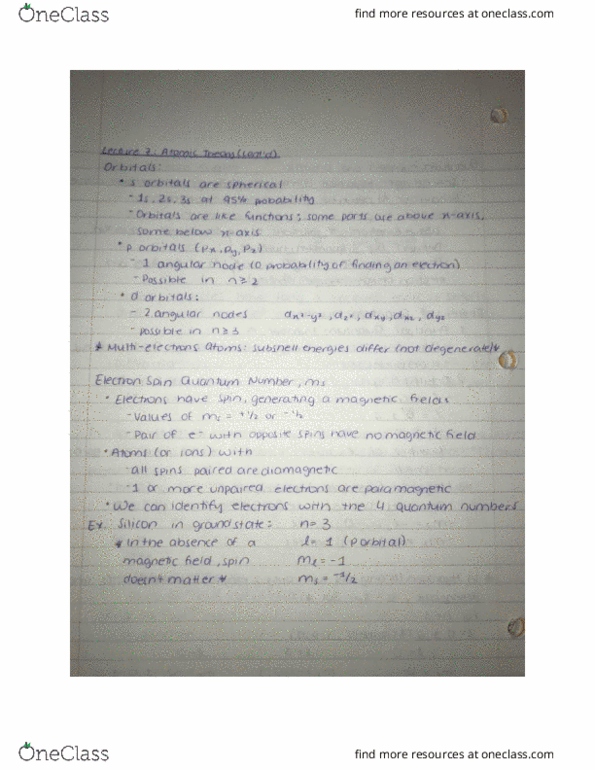 OneClass
find more resources at oneclass.com
Lecture 7: Atomic Theory (cont'd).
Orbitals:
• s orbitals are spherical
- 1s, 2s, 3s at 95% pobability
- Orbitals are like functions; some parts are above x-axis,
some below x-axis
• p orbitals (Px, Py, Pz)
- 1 angular node (0 probability of finding an electron)
- Possible in n≥2
• d orbitals:
- 2 angular nodes dx²-y², dz², dxy, dxz, dyz
- possible in n≥3
* Multi-electrons atoms: subshell energies differ (not degenerate)*
Electron Spin Quantum Number, ms
• Electrons have spin, generating a magnetic field
- Values of ms = +1/2 or -1/2
- Pair of e- with opposite spins have no magnetic field
• Atoms (or ions) with
- all spins paired are diamagnetic
- 1 or more unpaired electrons are paramagnetic
• We can identify electrons with the 4 quantum numbers
Ex. Silicon in ground state: n= 3
* In the absence of a l= 1 (p orbital)
magnetic field, spin ml = -1
doesn't matter * ms = -1/2
OneClass
find more resources at oneclass.com